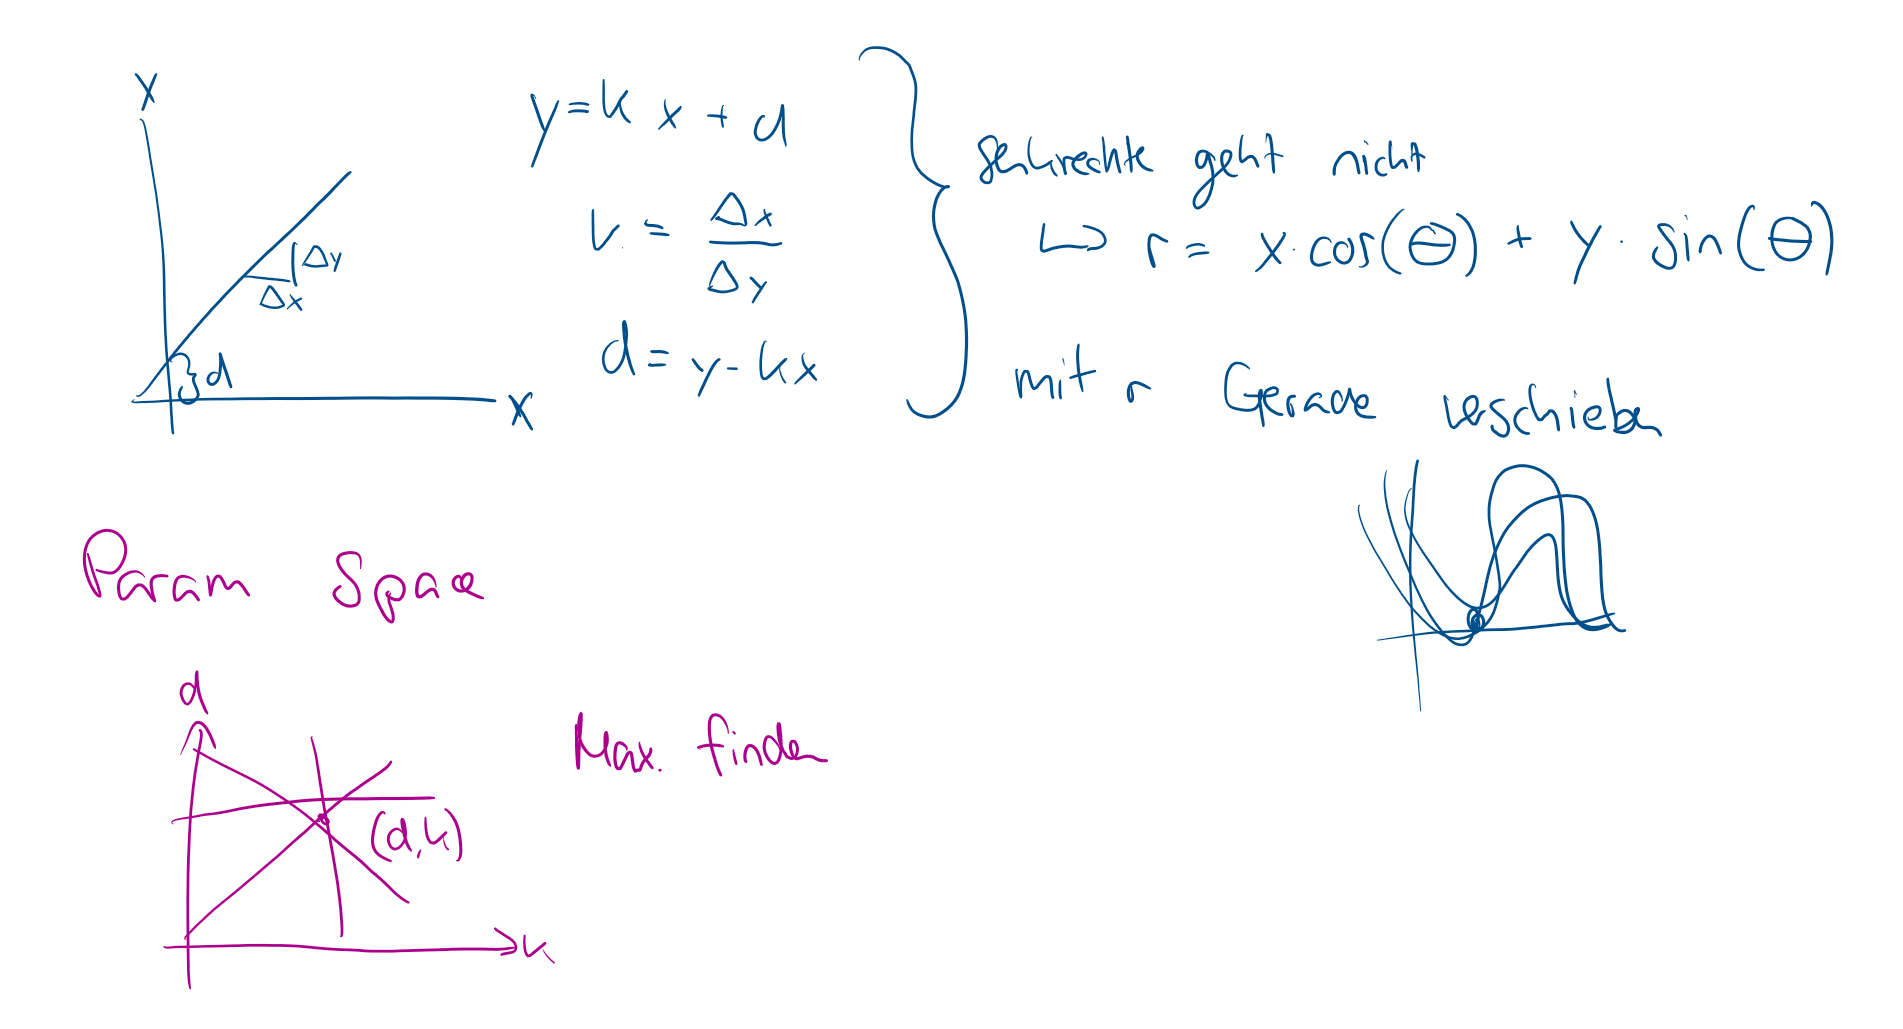 y
y = k x + d
k = Δx / Δy
d = y - kx
Δy
Δx
d
x
senkrechte geht nicht
↪ r = x · cos(θ) + y · sin(θ)
mit r Gerade verschieben
Param Space
d
Max. finden
(d,k)
k